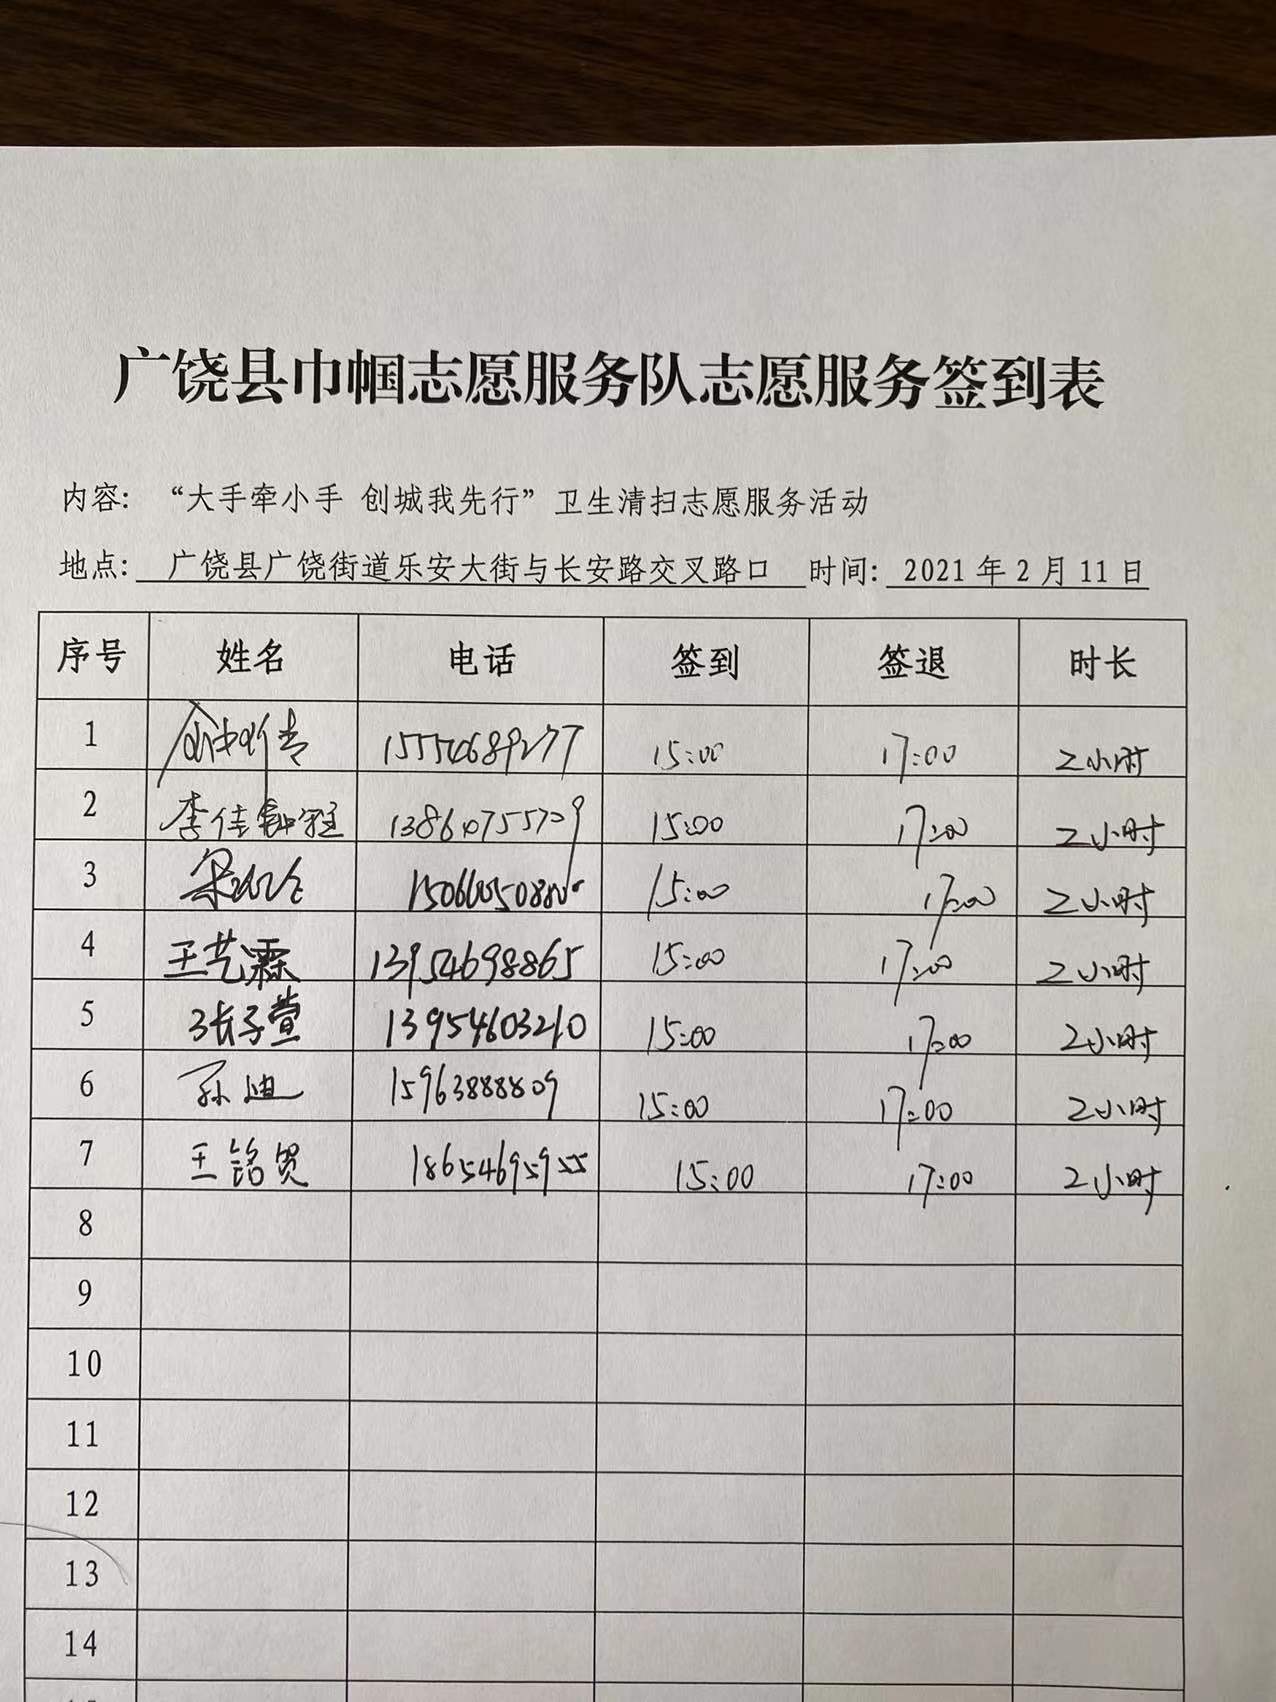 广饶县巾帼志愿服务队志愿服务签到表
内容：“大手牵小手 创城我先行”卫生清扫志愿服务活动
地点： 广饶县广饶街道乐安大街与长安路交叉路口 时间： 2021 年 2 月 11 日
序号 姓名 电话 签到 签退 时长
1 15554689277 15:00 17:00 2小时
2 李佳 15:00 17:00 2小时
3 15:00 17:00 2小时
4 王艺霖 13954698865 15:00 17:00 2小时
5 张子萱 13954603210 15:00 17:00 2小时
6 孙迪 15963888809 15:00 17:00 2小时
7 王铭贤 18654695955 15:00 17:00 2小时
8
9
10
11
12
13
14